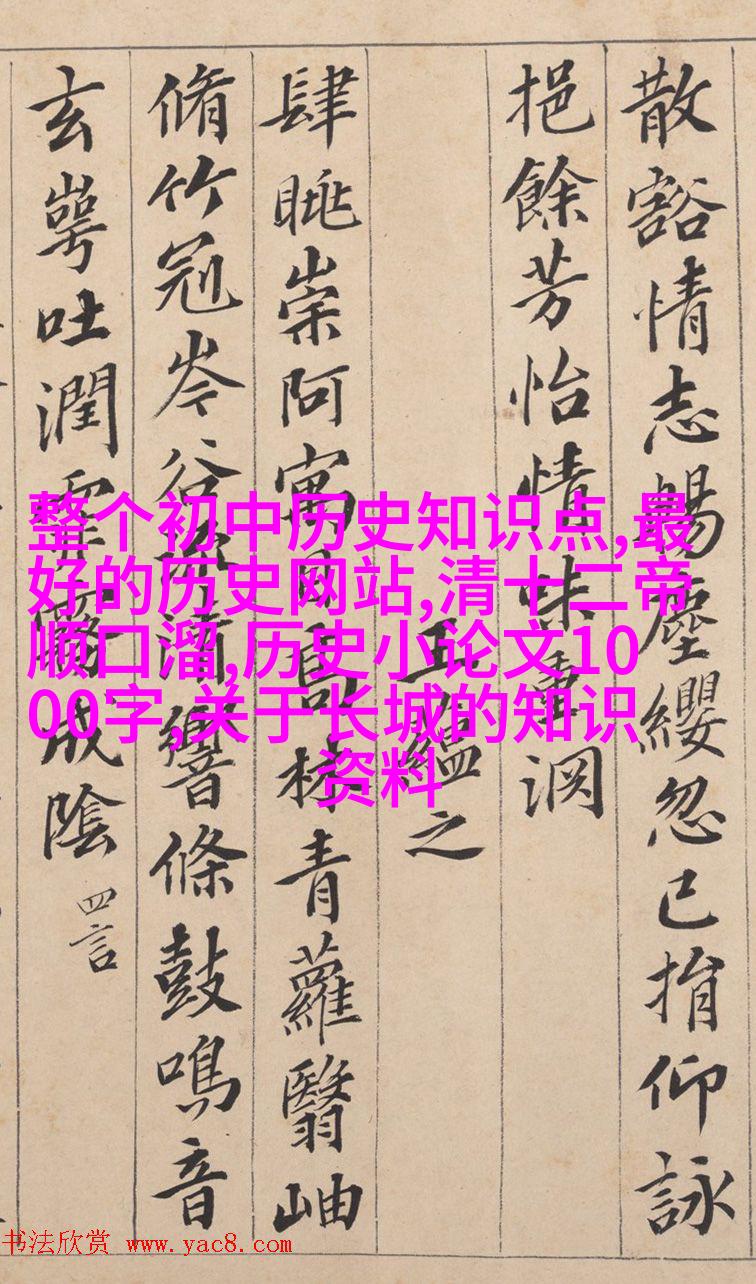 散豁情志暢塵纓忽已捐仰詠
挹餘芳怡情味重淵
王蘊之
肆眺崇阿寓目高林青蘿翳岫
脩竹冠岑谷流清響條鼓鳴音
玄崿吐潤霏霧成陰 四言
整个初中历史知识点,最
好的历史网站,清十二帝
顺口溜,历史小论文10
00字,关于长城的知识
资料
书法欣赏 www.yac8.com